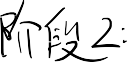 阶段2: